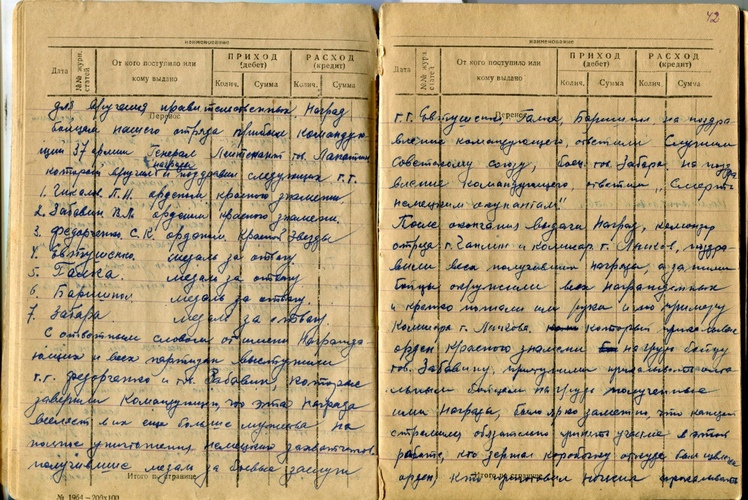 наименование
Дата
№№ журн. статей
От кого поступило или кому выдано
ПРИХОД (дебет)
РАСХОД (кредит)
Колич.
Сумма
Колич.
Сумма
Перенос
для вручения правительственных наград
бойцам нашего отряда прибыл командую-
щий 37 армии Генерал Лейтенант тов. Лопатин
который вручил и поздравил следующих т.т.
1. Чикалов Л.Н. орденом красного знамени
2. Забавин В.Л. орденом красного знамени.
3. Федорченко С.К. орденом Красной Звезды
4. Евтушенко. медаль за отвагу
5. Галка. медаль за отвагу
6. медаль за отвагу.
7. Забара медаль за отвагу.
С ответным словом от имени награжда-
ющихся и всех партизан выступили
т.т. Федорченко и тов. Забавин, которые
заверили командующего, что эта награда
вселяет в них еще больше мужества на
полное уничтожение немецких захватчиков
получившие медаль за боевые заслуги
Итого по странице
№ 1964 — 200×100
42
наименование
Дата
№№ журн. статей
От кого поступило или кому выдано
ПРИХОД (дебет)
РАСХОД (кредит)
Колич.
Сумма
Колич.
Сумма
Перенос
т.т. Евтушенко, Галка, на поздра-
вление командующего, ответили Служим
Советскому союзу, боец тов. Забара на поздра
вление командующего, ответил „Смерть
немецким окупантам"
После окончания выдачи наград, командир
отряда т. и Комиссар т. поздра-
вили всех получивших награды, а за ними
бойцы окружили всех награжденных
и крепко им руки и по примеру
Комиссара т. который
орден Красного знамени на грудь бойцу
тов. Забавину, приступили
бойцам на грудь полученные
ими награды, было ярко заметно, что каждый
стремился обязательно принять участие в этой
работе, кто держал коробочку откуда был
орден, кто
Итого по странице